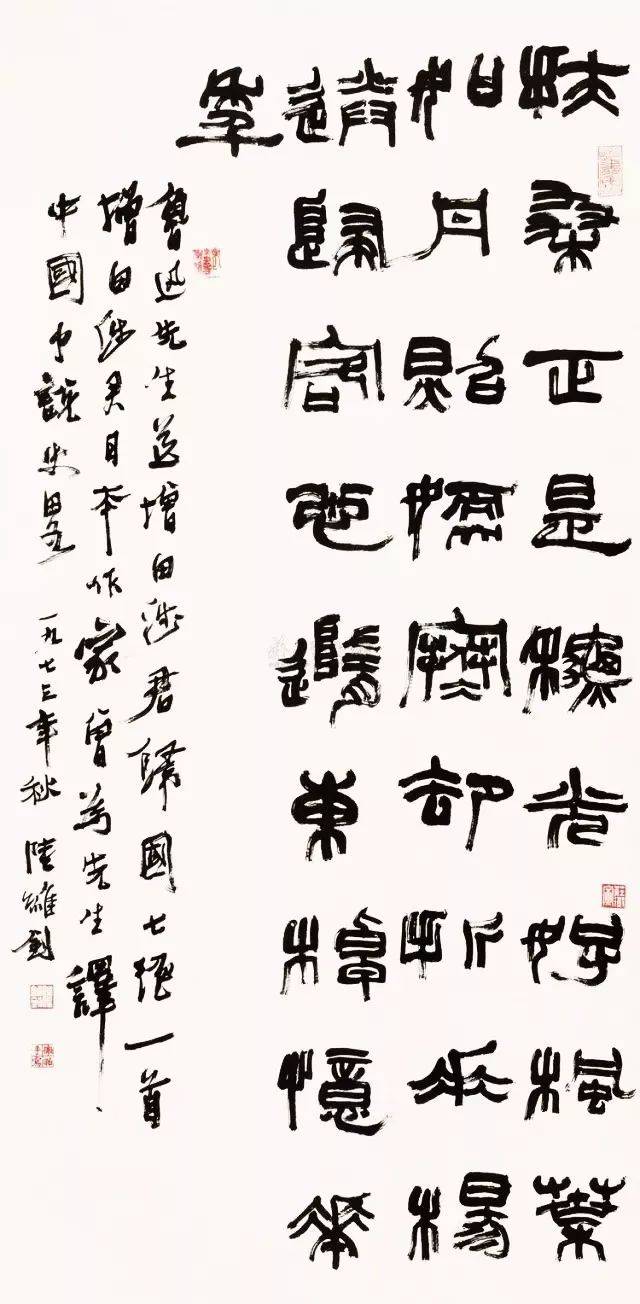 扶桑正是秋光好楓葉
如丹照嫩寒却折垂楊
送歸客心隨東棹憶華
年
魯迅先生送增田涉君歸國七絕一首
增田涉君日本作家曾為先生譯
中國小說史畧 一九七三年秋 陸維釗